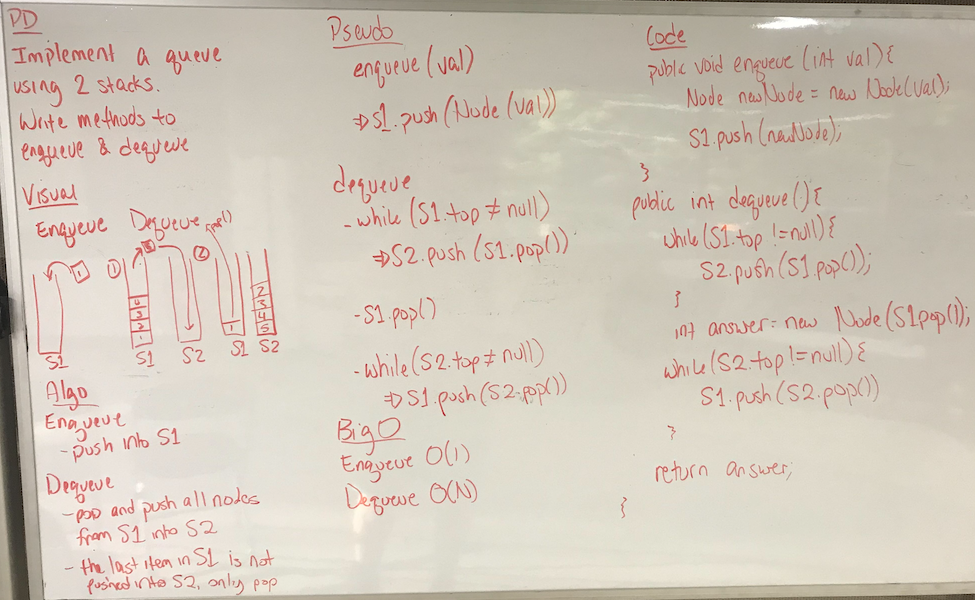 PD
Implement a queue
using 2 stacks.
Write methods to
enqueue & dequeue
Visual
Enqueue
1
S1
Dequeue
pop()
1
5
4
3
2
1
S1
S2
2
1
S1
2
3
4
5
S2
Algo
Enqueue
- push into S1
Dequeue
- pop and push all nodes
from S1 into S2
- the last item in S1 is not
pushed into S2, only pop
Pseudo
enqueue (val)
⇒ S1.push (Node (val))
dequeue
- while (S1.top ≠ null)
⇒ S2.push (S1.pop())
- S1.pop()
- while (S2.top ≠ null)
⇒ S1.push (S2.pop())
Big O
Enqueue O(1)
Dequeue O(N)
Code
public void enqueue (int val) {
Node newNode = new Node(val);
S1.push (newNode);
}
public int dequeue () {
while (S1.top != null) {
S2.push (S1.pop());
}
int answer = new Node (S1.pop();
while (S2.top != null) {
S1.push (S2.pop())
}
return answer;
}